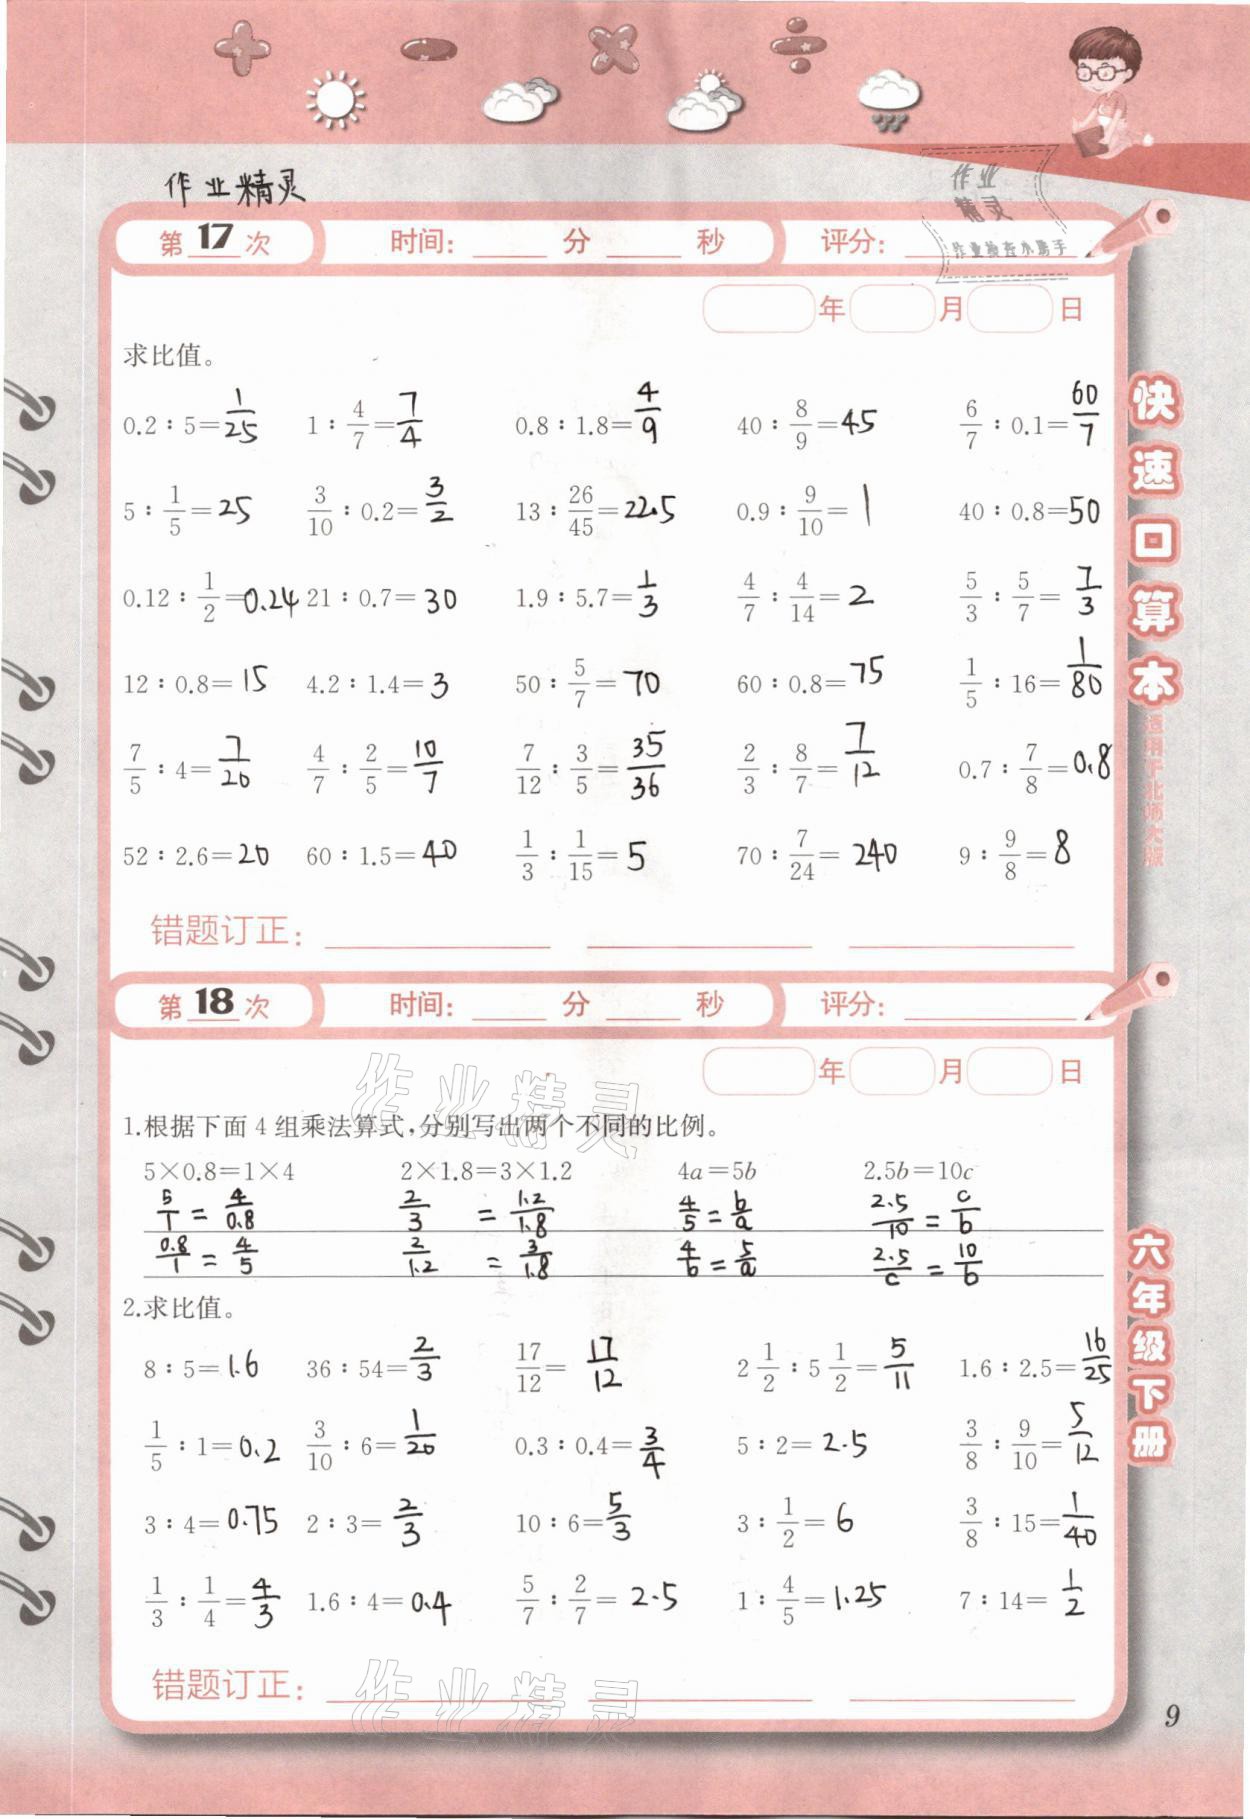 作业精灵
作业
精灵
作业检查小助手
第 17 次 时间: 分 秒 评分:
年 月 日
求比值。
0.2∶5=1/25 1∶4/7=7/4 0.8∶1.8=4/9 40∶8/9=45 6/7∶0.1=60/7
5∶1/5=25 3/10∶0.2=3/2 13∶26/45=22.5 0.9∶9/10=1 40∶0.8=50
0.12∶1/2=0.24 21∶0.7=30 1.9∶5.7=1/3 4/7∶4/14=2 5/3∶5/7=7/3
12∶0.8=15 4.2∶1.4=3 50∶5/7=70 60∶0.8=75 1/5∶16=1/80
7/5∶4=7/20 4/7∶2/5=10/7 7/12∶3/5=35/36 2/3∶8/7=7/12 0.7∶7/8=0.8
52∶2.6=20 60∶1.5=40 1/3∶1/15=5 70∶7/24=240 9∶9/8=8
错题订正:
第 18 次 时间: 分 秒 评分:
年 月 日
作业精灵
1.根据下面 4 组乘法算式,分别写出两个不同的比例。
5×0.8=1×4 2×1.8=3×1.2 4a=5b 2.5b=10c
5/1=4/0.8 2/3=1.2/1.8 4/5=b/a 2.5/10=c/b
0.8/1=4/5 2/1.2=3/1.8 4/b=5/a 2.5/c=10/b
2.求比值。
8∶5=1.6 36∶54=2/3 17/12=17/12 2 1/2∶5 1/2=5/11 1.6∶2.5=16/25
1/5∶1=0.2 3/10∶6=1/20 0.3∶0.4=3/4 5∶2=2.5 3/8∶9/10=5/12
3∶4=0.75 2∶3=2/3 10∶6=5/3 3∶1/2=6 3/8∶15=1/40
1/3∶1/4=4/3 1.6∶4=0.4 5/7∶2/7=2.5 1∶4/5=1.25 7∶14=1/2
错题订正:
作业精灵
快速口算本
适用于北师大版
六年级下册
9